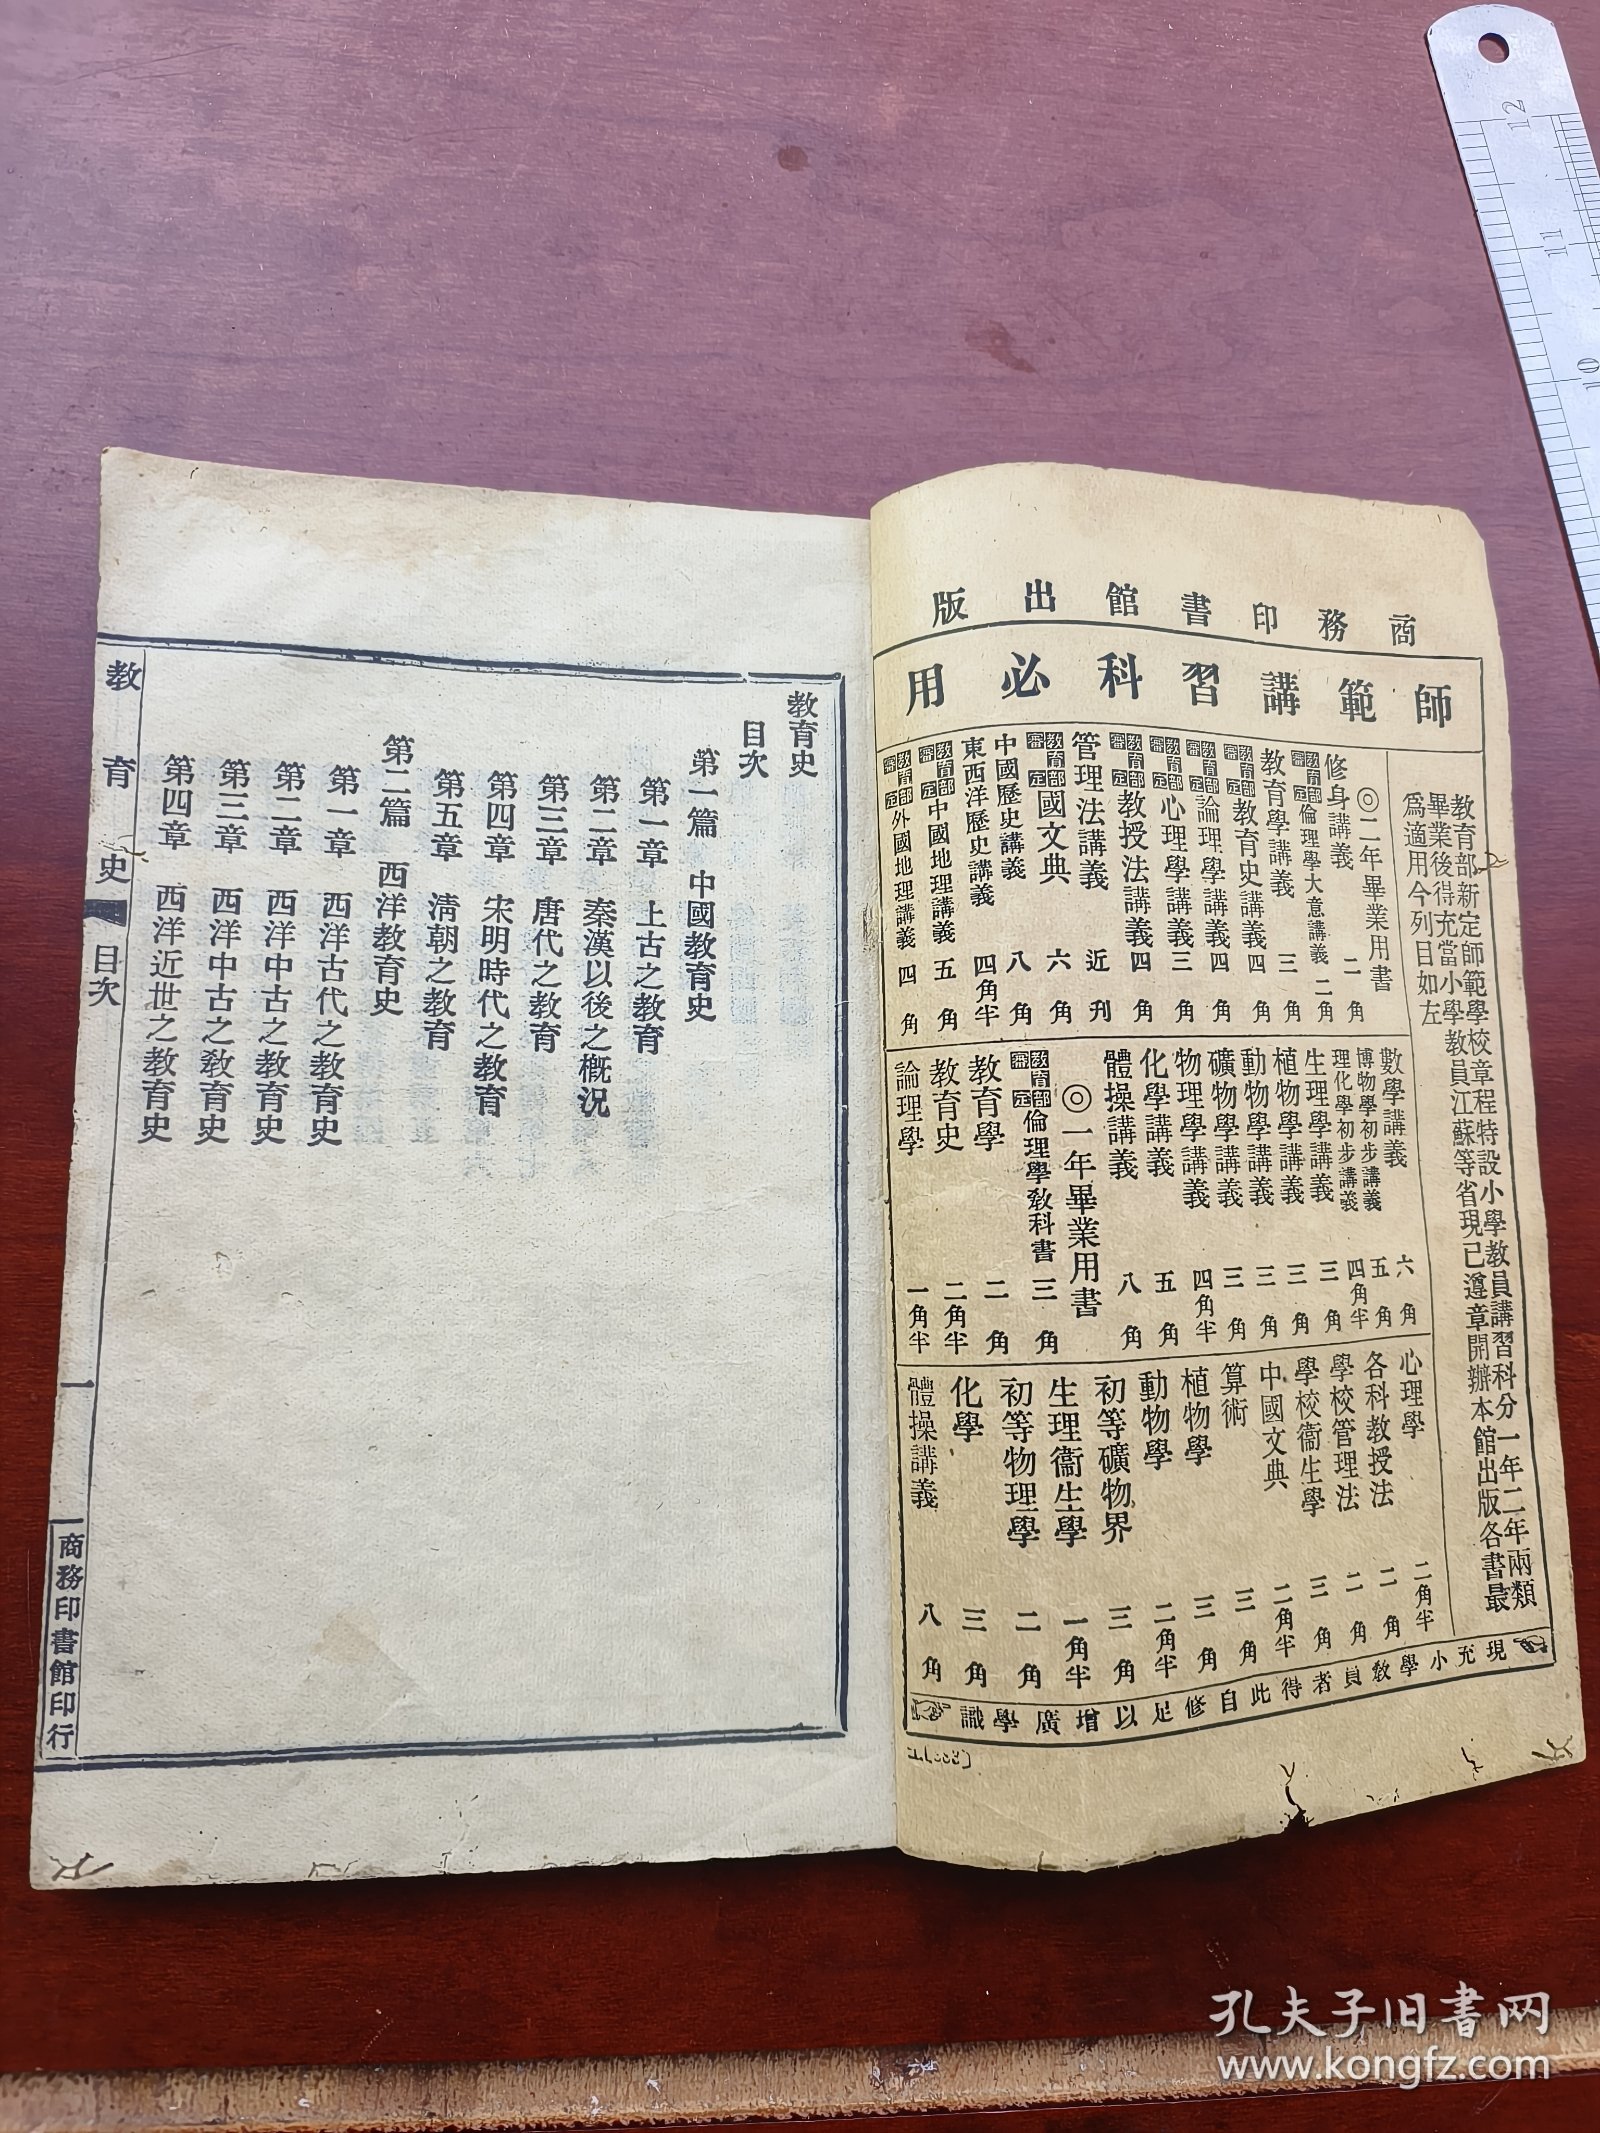 商務印書館出版
師範講習科必用
教育部新定師範學校章程特設小學教員講習科分一年二年兩類
畢業後得充當小學教員江蘇等省現已遵章開辦本館出版各書最
為適用今列目如左
◎二年畢業用書
修身講義 二角
教育部審定 倫理學大意講義 二角
教育學講義 三角
教育部審定 教育史講義 四角
教育部審定 論理學講義 四角
教育部審定 心理學講義 三角
教育部審定 教授法講義 四角
管理法講義 近刋
教育部審定 國文典 六角
中國歷史講義 八角
東西洋歷史講義 四角半
教育部審定 中國地理講義 五角
教育部審定 外國地理講義 四角
數學講義 六角
博物學初步講義 五角
理化學初步講義 四角半
生理學講義 三角
植物學講義 三角
動物學講義 三角
礦物學講義 三角
物理學講義 四角半
化學講義 五角
體操講義 八角
◎一年畢業用書
教育部審定 倫理學教科書 三角
教育學 二角
教育史 二角半
論理學 一角半
心理學 二角半
各科教授法 二角
學校管理法 二角
學校衞生學 三角
中國文典 二角半
算術 三角
植物學 三角
動物學 二角半
初等礦物界 三角
生理衞生學 一角半
初等物理學 二角
化學 三角
體操講義 八角
現充小學教員者得此自修足以增廣學識
教育史
目次
第一篇 中國教育史
第一章 上古之教育
第二章 秦漢以後之概況
第三章 唐代之教育
第四章 宋明時代之教育
第五章 淸朝之教育
第二篇 西洋教育史
第一章 西洋古代之教育史
第二章 西洋中古之教育史
第三章 西洋中古之教育史
第四章 西洋近世之教育史
教育史 目次 一 商務印書館印行
12
11
10
孔夫子旧书网
www.kongfz.com